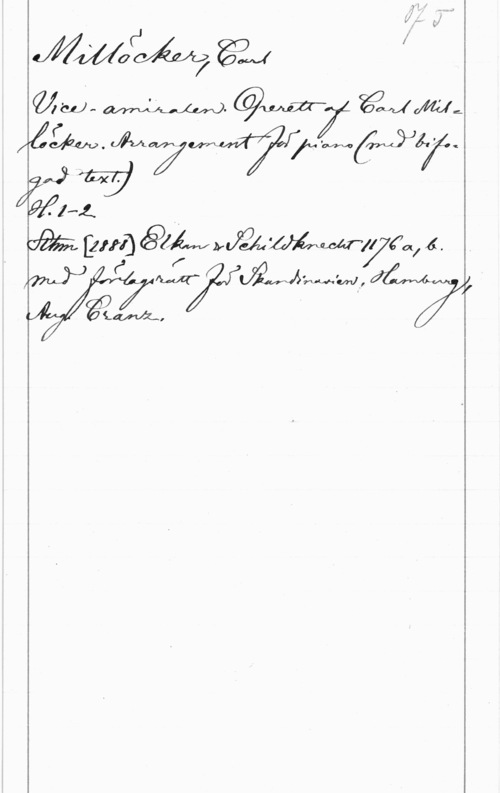 Millöcker, Carl
Vice-amiralen. Operett af Carl Mil-
löcker. Arrangement för piano (med bifo-
gad text.)
H. 1-2
Sthm [1888] Elkan & Schildknecht 1176 a, b.
med förlagsrätt för Skandinavien, Hamburg,
Aug. Cranz.